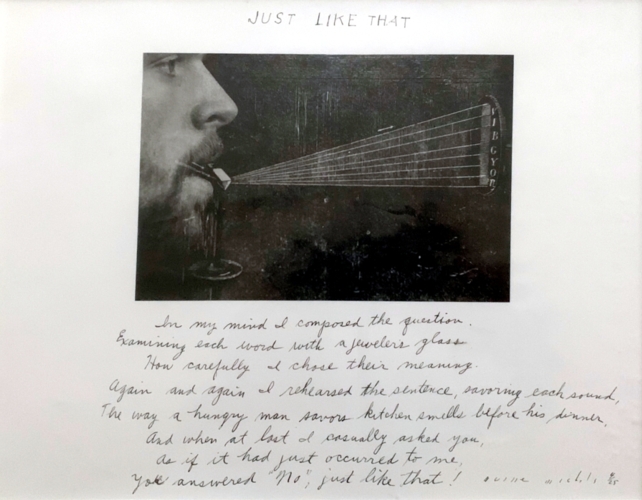 JUST LIKE THAT
VIBGYOR
In my mind I composed the question.
Examining each word with a jewelers glass
How carefully I chose their meaning.
Again and again I rehearsed the sentence, savoring each sound,
The way a hungry man savors kitchen smells before his dinner,
And when at last I casually asked you,
As if it had just occurred to me,
You answered "No", just like that!